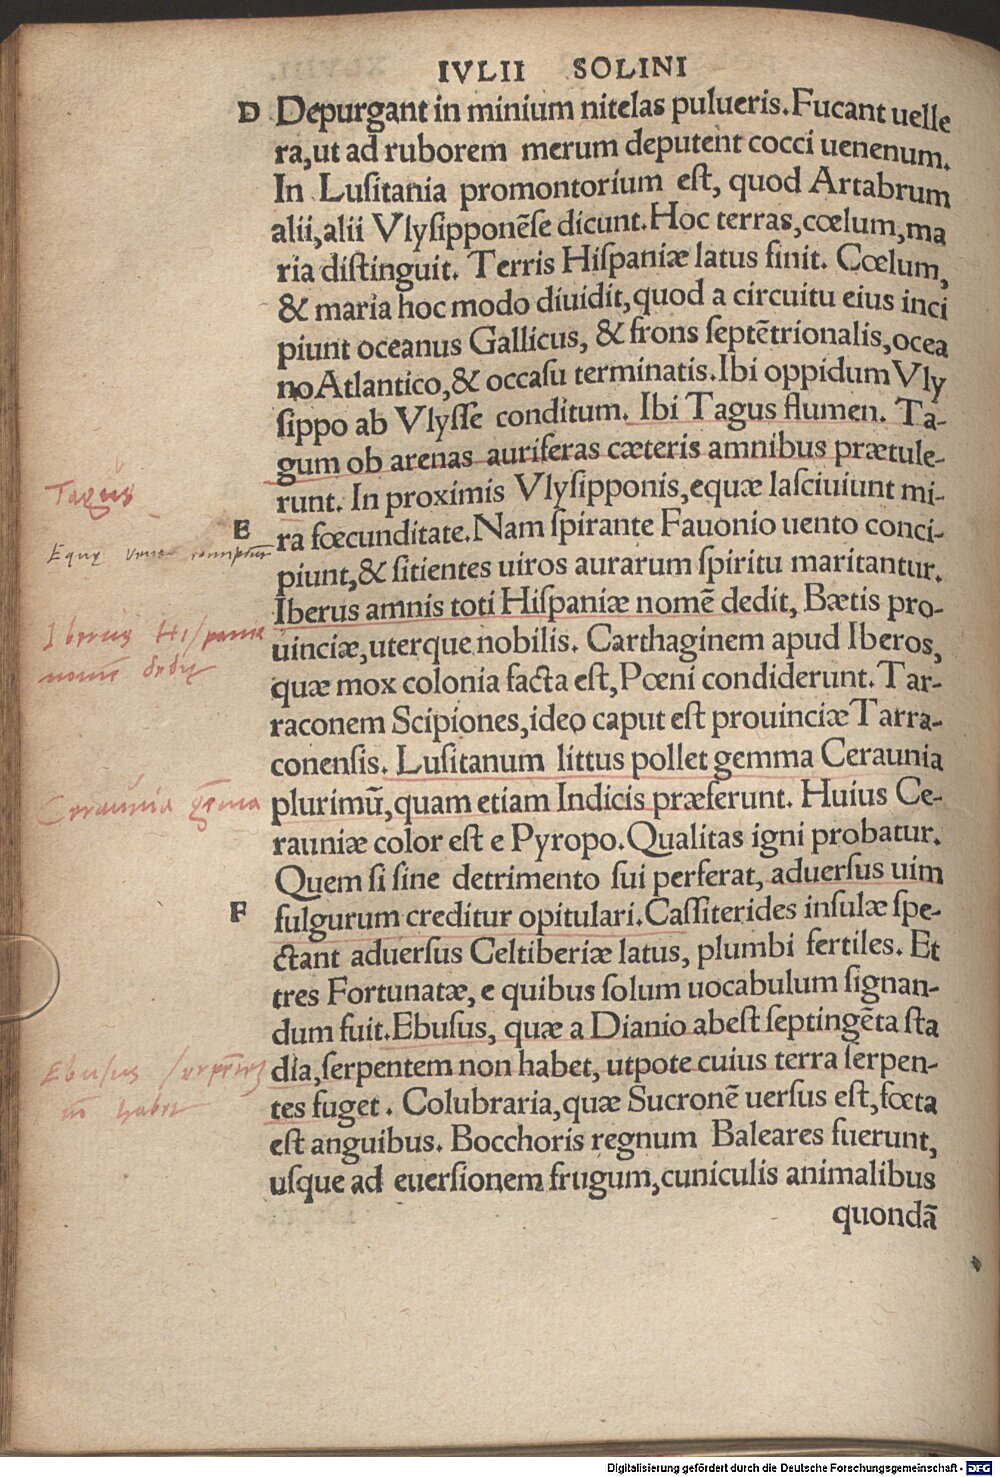 IVLII SOLINI
D Depurgant in minium nitelas pulueris. Fucant uelle
ra, ut ad ruborem merum deputent cocci uenenum.
In Luſitania promontorium eſt, quod Artabrum
alii, alii Vlyſipponẽſe dicunt. Hoc terras, cœlum, ma
ria diſtinguit. Terris Hiſpaniæ latus finit. Cœlum,
& maria hoc modo diuidit, quod a circuitu eius inci
piunt oceanus Gallicus, & frons ſeptẽtrionalis, ocea
no Atlantico, & occaſu terminatis. Ibi oppidum Vly
ſippo ab Vlyſſe conditum. Ibi Tagus flumen. Ta-
gum ob arenas auriferas cæteris amnibus prætule-
Tagus
runt. In proximis Vlyſipponis, equæ laſciuiunt mi-
E ra fœcunditate. Nam ſpirante Fauonio uento conci-
Equę
piunt, & ſitientes uiros aurarum ſpiritu maritantur.
Iberus amnis toti Hiſpaniæ nomẽ dedit, Bætis pro-
Iberus Hiſpaniæ
uinciæ, uterque nobilis. Carthaginem apud Iberos,
nomẽ dedit
quæ mox colonia facta eſt, Pœni condiderunt. Tar-
raconem Scipiones, ideo caput eſt prouinciæ Tarra-
conenſis. Luſitanum littus pollet gemma Ceraunia
Ceraunia gẽma
plurimũ, quam etiam Indicis præferunt. Huius Ce-
rauniæ color eſt e Pyropo. Qualitas igni probatur.
Quem ſi ſine detrimento ſui perferat, aduerſus uim
F fulgurum creditur opitulari. Caſſiterides inſulæ ſpe-
ctant aduerſus Celtiberiæ latus, plumbi fertiles. Et
tres Fortunatæ, e quibus ſolum uocabulum ſignan-
dum fuit. Ebuſus, quæ a Dianio abeſt ſeptingẽta ſta
Ebuſus ſerpẽtes
dia, ſerpentem non habet, utpote cuius terra ſerpen-
nõ habet
tes fuget. Colubraria, quæ Sucronẽ uerſus eſt, fœta
eſt anguibus. Bocchoris regnum Baleares fuerunt,
uſque ad euerſionem frugum, cuniculis animalibus
quondã
Digitalisierung gefördert durch die Deutsche Forschungsgemeinschaft - DFG